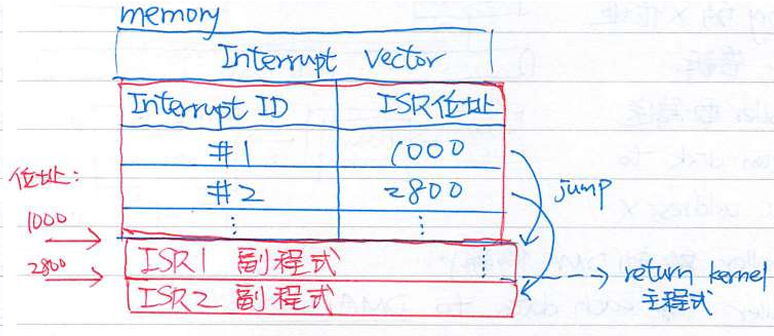 memory
Interrupt Vector
Interrupt ID ISR位址
#1 1000
#2 2800
⋮ ⋮
jump
位址:
1000
2800
ISR1 副程式
ISR2 副程式
return kernel
主程式